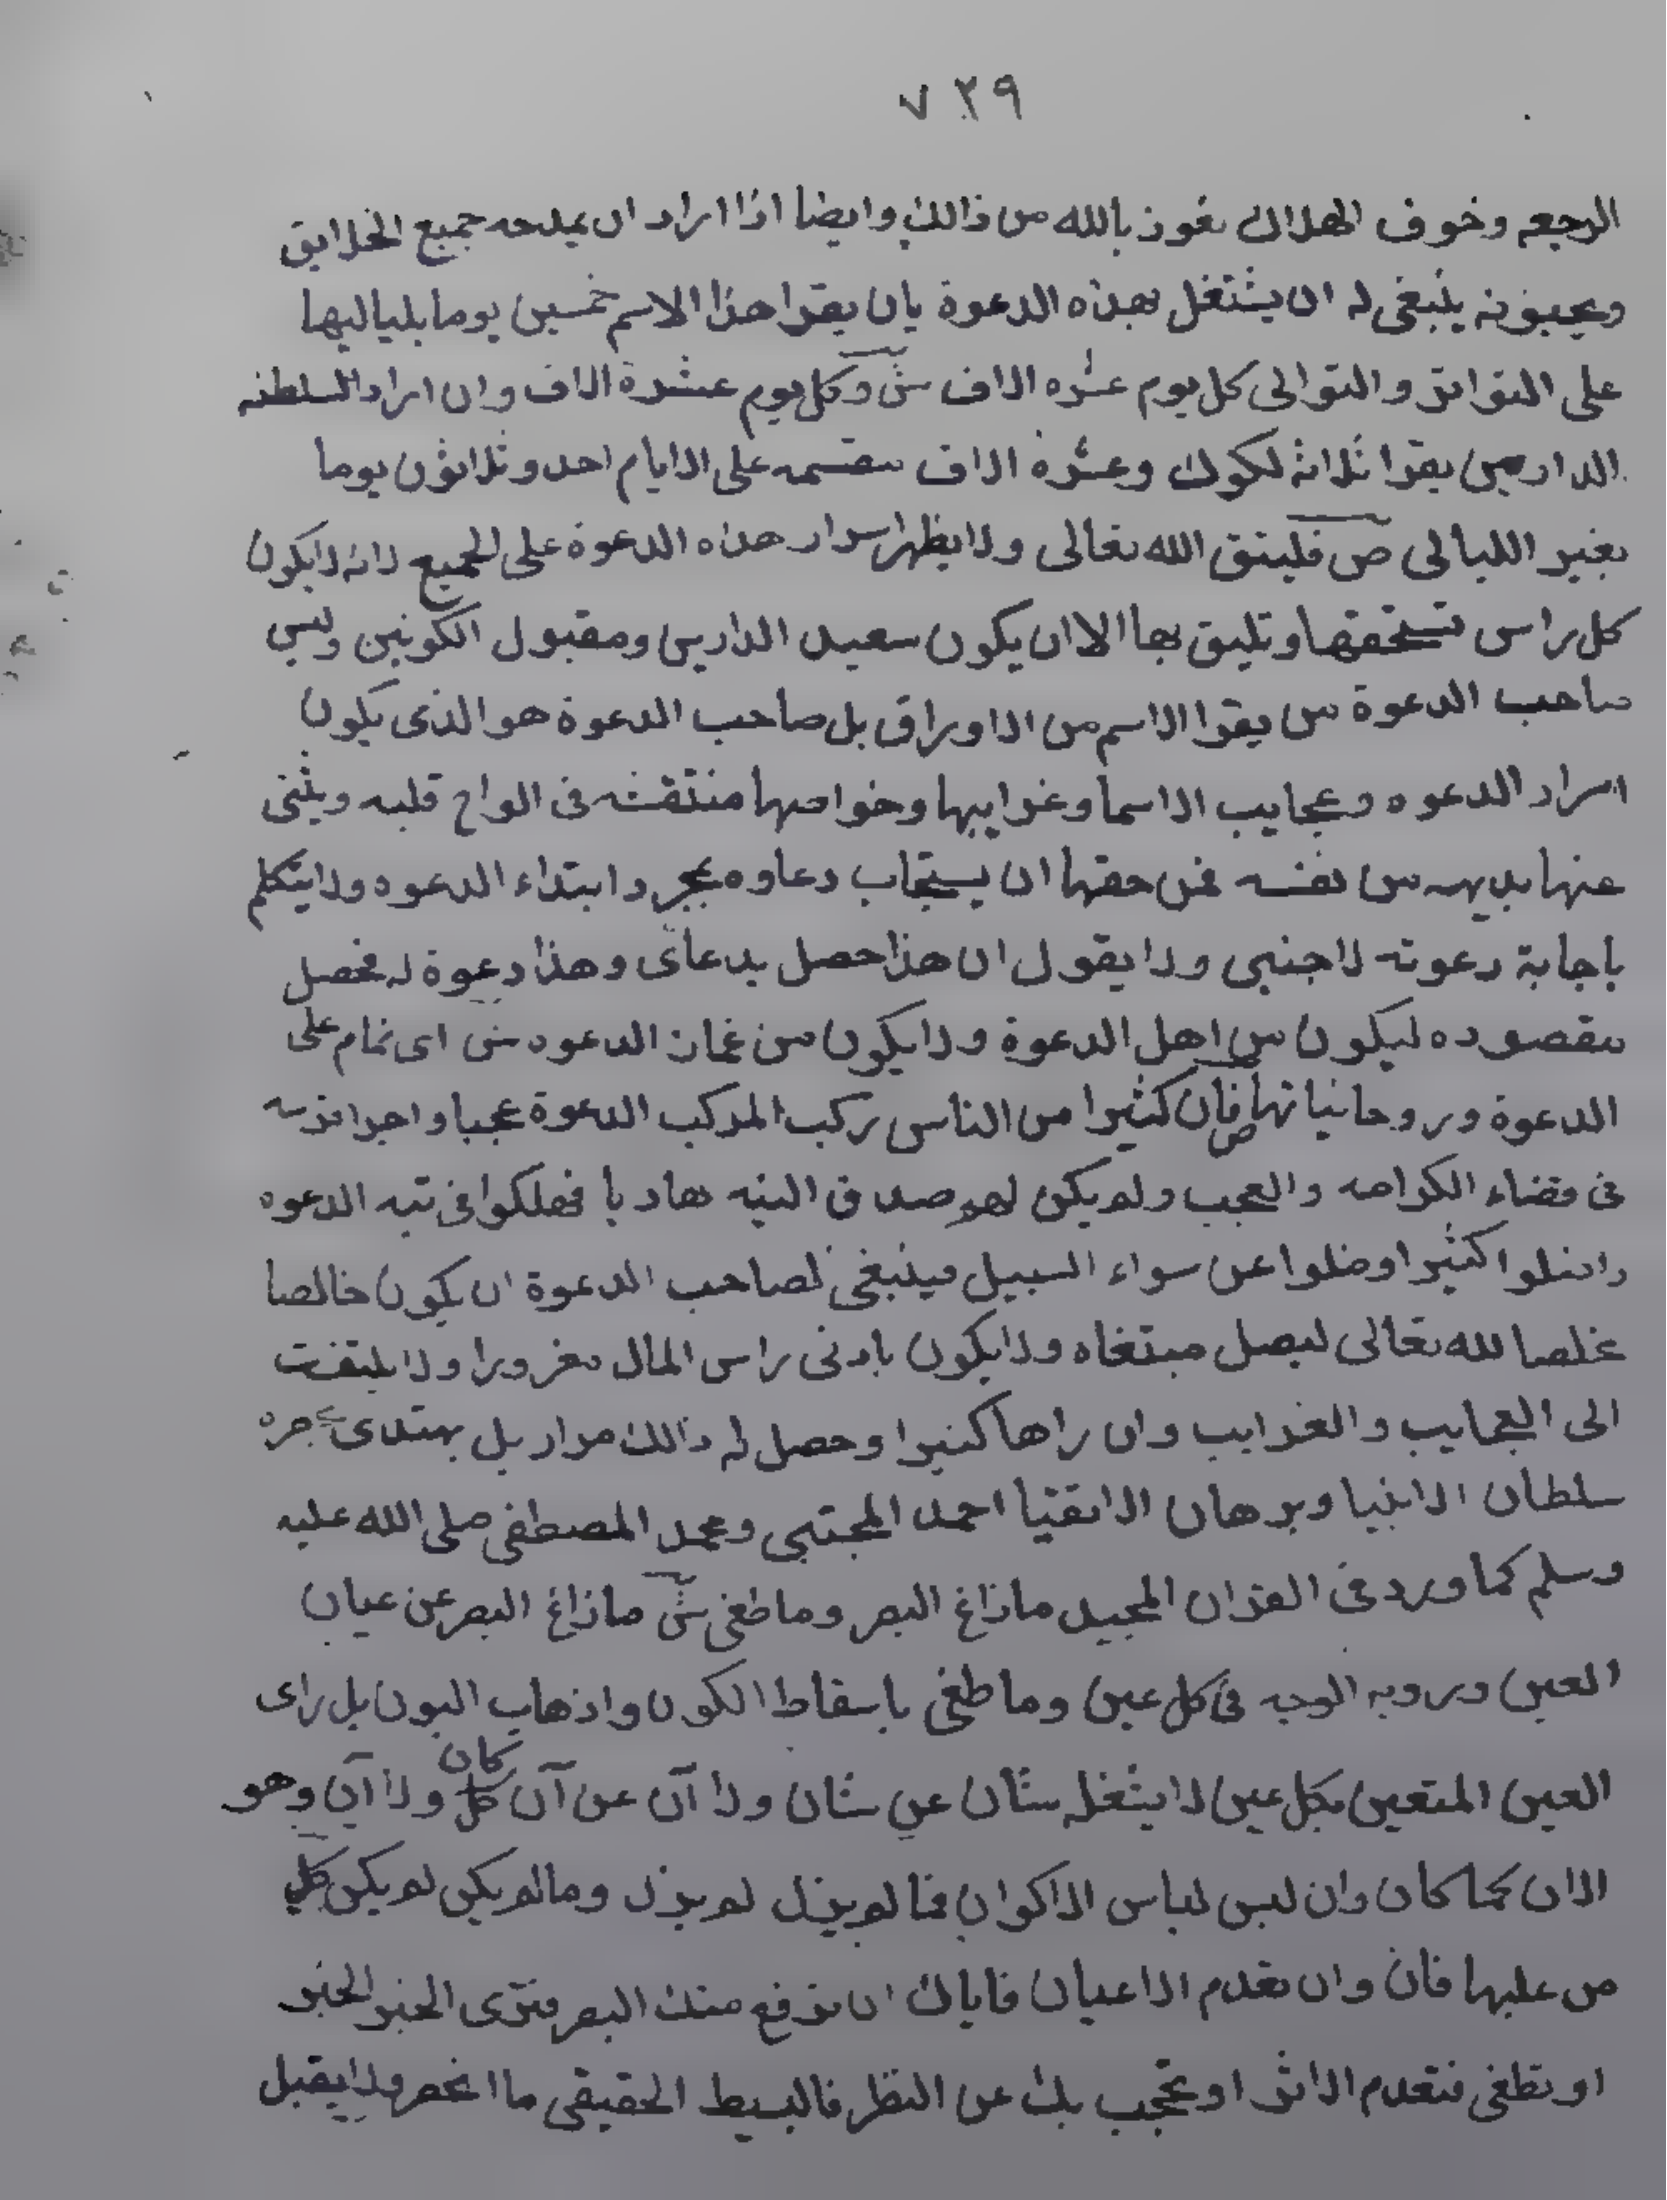 ٧٢٩
الرجعه وخوف الهلاك نعوذ بالله من ذالك وايضا اذا اراد ان يمدحه جميع الخلايق
ويحبونه ينبغى له ان يشتغل بهذه الدعوة بان يقرا هذا الاسم خمسين يوما بلياليها
على التواتر والتوالى كل يوم عشره الاف ش وكل يوم عشرة الاف وان اراد السلطنه
الدارين يقرا ثلاثة لكوك وعشره الاف مقسمه على الايام احد وثلاثون يوما
بغير الليالى ص فليتق الله تعالى ولا يظهر اسرار هذه الدعوة على الجميع لانه لايكون
كل راس تستحقها وتليق بها الا ان يكون سعيد الدارين ومقبول الكونين وليس
صاحب الدعوة من يقرا الاسم من الاوراق بل صاحب الدعوة هو الذى يكون
اسرار الدعوه وعجايب الاسما وغرايبها وخواصها منتقشه فى الواح قلبه ويثنى
عنها بديهه من نفسه فمن حقها ان يستجاب دعاوه بمجرد ابتداء الدعوه ولا يتكلم
باجابة دعوته لاجنبى ولا يقول ان هذا حصل بدعاى وهذا دعوة له فحصل
مقصوده ليكون من اهل الدعوة ولا يكون من غماز الدعوه ش اى نمام على
الدعوة وروحانياتها ص فان كثيرا من الناس ركب المركب الدعوة عجبا واجرا فرسه
فى فضاء الكرامه والعجب ولم يكن لهم صدق النيه هاديا فهلكوا فى تيه الدعوه
واضلوا كثيرا وضلوا عن سواء السبيل فينبغى لصاحب الدعوة ان يكون خالصا
مخلصا لله تعالى ليصل مبتغاه ولا يكون بادنى راس المال مغرورا ولا يلتفت
الى العجايب والغرايب وان راها كثيرا وحصل له ذالك مرار بل يهتدى
سلطان الانبيا وبرهان الاتقيا احمد المجتبى ومحمد المصطفى صلى الله عليه
وسلم كما ورد فى القران المجيد مازاغ البصر وما طغى ش مازاغ البصر عن عيان
العين ورويه الوجه فى كل عين وما طغى باسقاط الكون واذهاب البون بل راى
العين المتعين بكل عين لا يشغله شان عن شان ولا آن عن آن كل كان ولا آن وهو
الان كما كان وان لبس لباس الاكوان فما لم يزل لم يزل وما لم يكن لم يكن كل
من عليها فان وان تقدم الاعيان فاياك ان ترفع منك البصر فترى الخبر الخبر
او تطغى فتعدم الاثر او تحجب بك عن النظر فالبسيط الحقيقى ما انحصر ولا يقبل